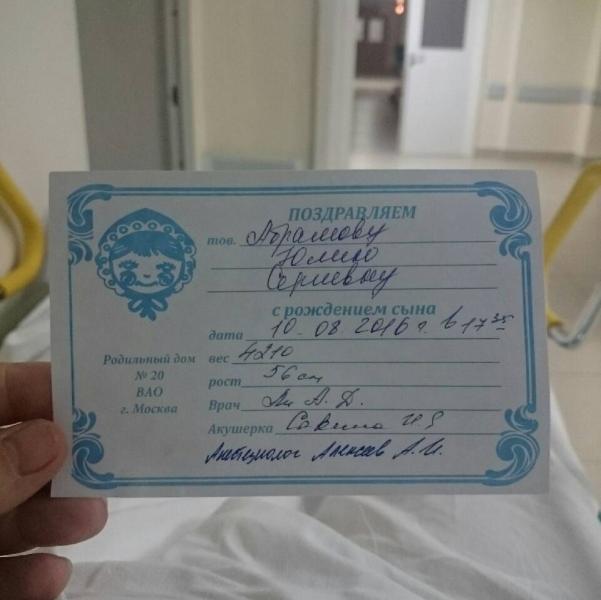 ПОЗДРАВЛЯЕМ
тов. Абрамову
Юлию
Сергеевну
с рождением сына
дата 10.08.2016 г. в 17 35
вес 4210
рост 56 см
Врач А. Д.
Акушерка
Анестезиолог Алексеев А.И.
Родильный дом
№ 20
ВАО
г. Москва